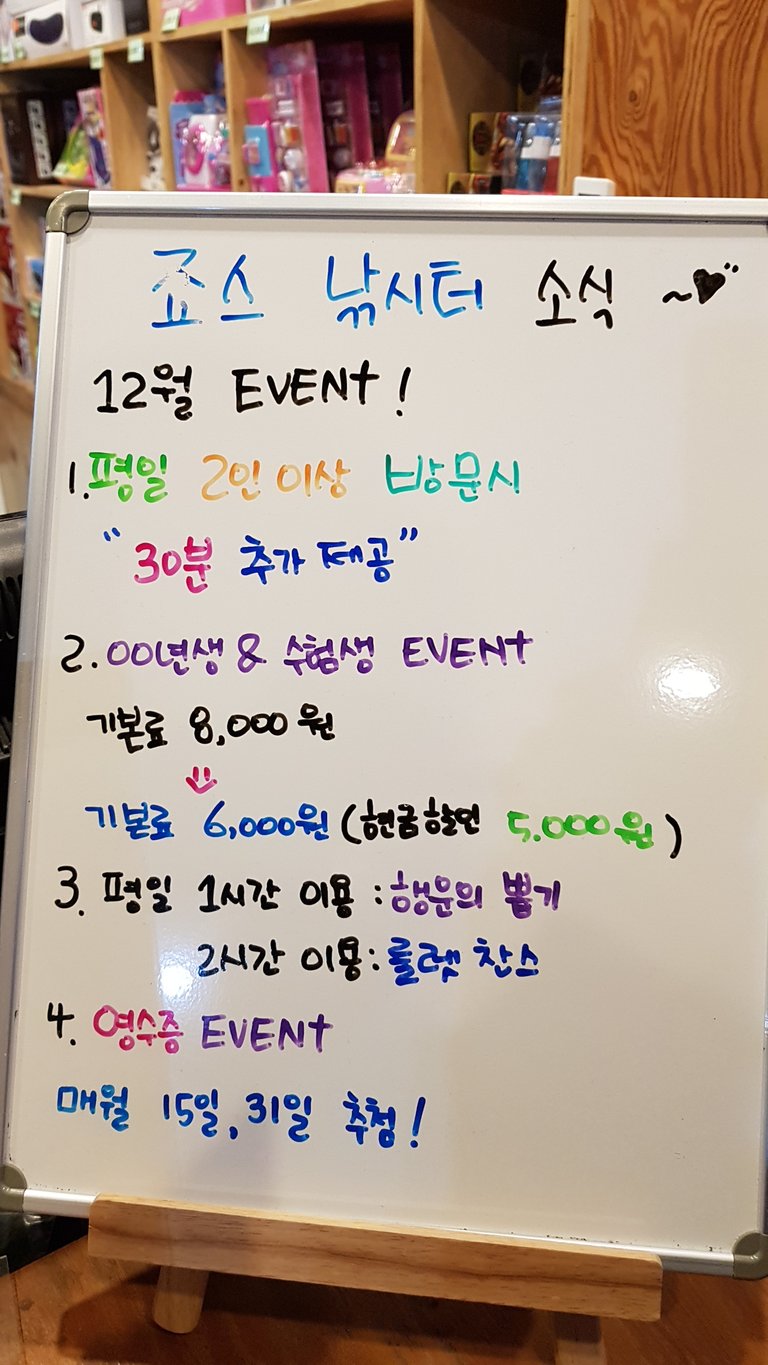 죠스 낚시터 소식 ~♥
12월 EVENt!
1. 평일 2인 이상 방문시
"30분 추가 제공"
2. 00년생 & 수험생 EVENt
기본료 8,000원
↓
기본료 6,000원 (현금할인 5,000원)
3. 평일 1시간 이용 : 행운의 뽑기
2시간 이용 : 룰렛 찬스
4. 영수증 EVENt
매월 15일, 31일 추첨!